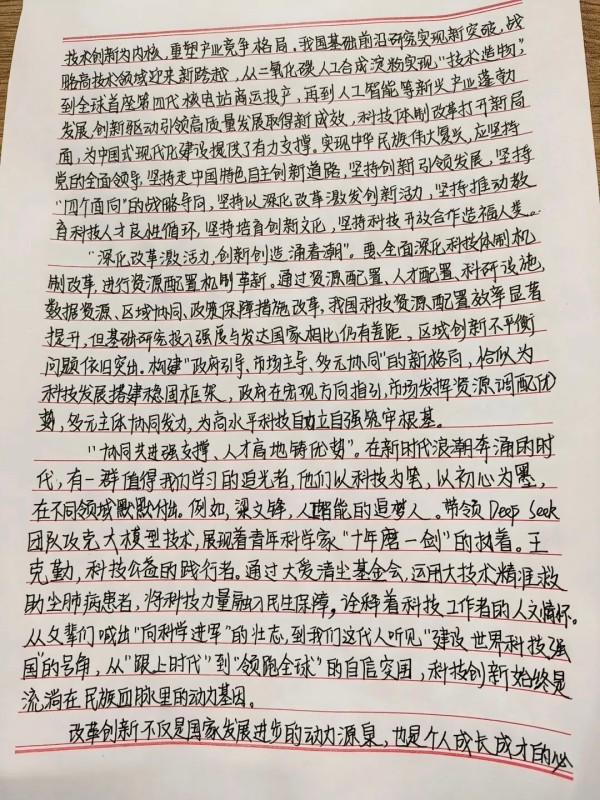 技术创新为内核，重塑产业竞争格局。我国基础前沿研究实现新突破，战
略高技术领域迎来新跨越，从二氧化碳人工合成淀粉实现“技术造物”，
到全球首座第四代核电站商运投产，再到人工智能等新兴产业蓬勃
发展，创新驱动引领高质量发展取得新成效，科技体制改革打开新局
面，为中国式现代化建设提供了有力支撑。实现中华民族伟大复兴，应坚持
党的全面领导，坚持走中国特色自主创新道路，坚持创新引领发展，坚持
“四个面向”的战略导向，坚持以深化改革激发创新活力，坚持推动教
育科技人才良性循环，坚持培育创新文化，坚持科技开放合作造福人类。
“深化改革激活力，创新创造涌春潮”。要全面深化科技体制机
制改革，进行资源配置机制革新。通过资源配置、人才配置、科研设施、
数据资源、区域协同、政策保障措施改革，我国科技资源配置效率显著
提升，但基础研究投入强度与发达国家相比仍有差距，区域创新不平衡
问题依旧突出。构建“政府引导、市场主导、多元协同”的新格局，恰似为
科技发展搭建稳固框架，政府在宏观方向指引，市场发挥资源调配优
势，多元主体协同发力，为高水平科技自立自强筑牢根基。
“协同共进强支撑、人才高地铸优势”。在新时代浪潮奔涌的时
代，有一群值得我们学习的追光者，他们以科技为笔，以初心为墨，
在不同领域默默付出。例如，梁文锋，人工智能的追梦人。带领Deep Seek
团队攻克大模型技术，展现着青年科学家“十年磨一剑”的执着。王
克勤，科技公益的践行者。通过大爱清尘基金会，运用大技术精准救
助尘肺病患者，将科技力量融入民生保障，诠释着科技工作者的人文情怀。
从父辈们喊出“向科学进军”的壮志，到我们这代人听见“建设世界科技强
国”的号角，从“跟上时代”到“领跑全球”的自信突围，科技创新始终是
流淌在民族血脉里的动力基因。
改革创新不仅是国家发展进步的动力源泉，也是个人成长成才的必